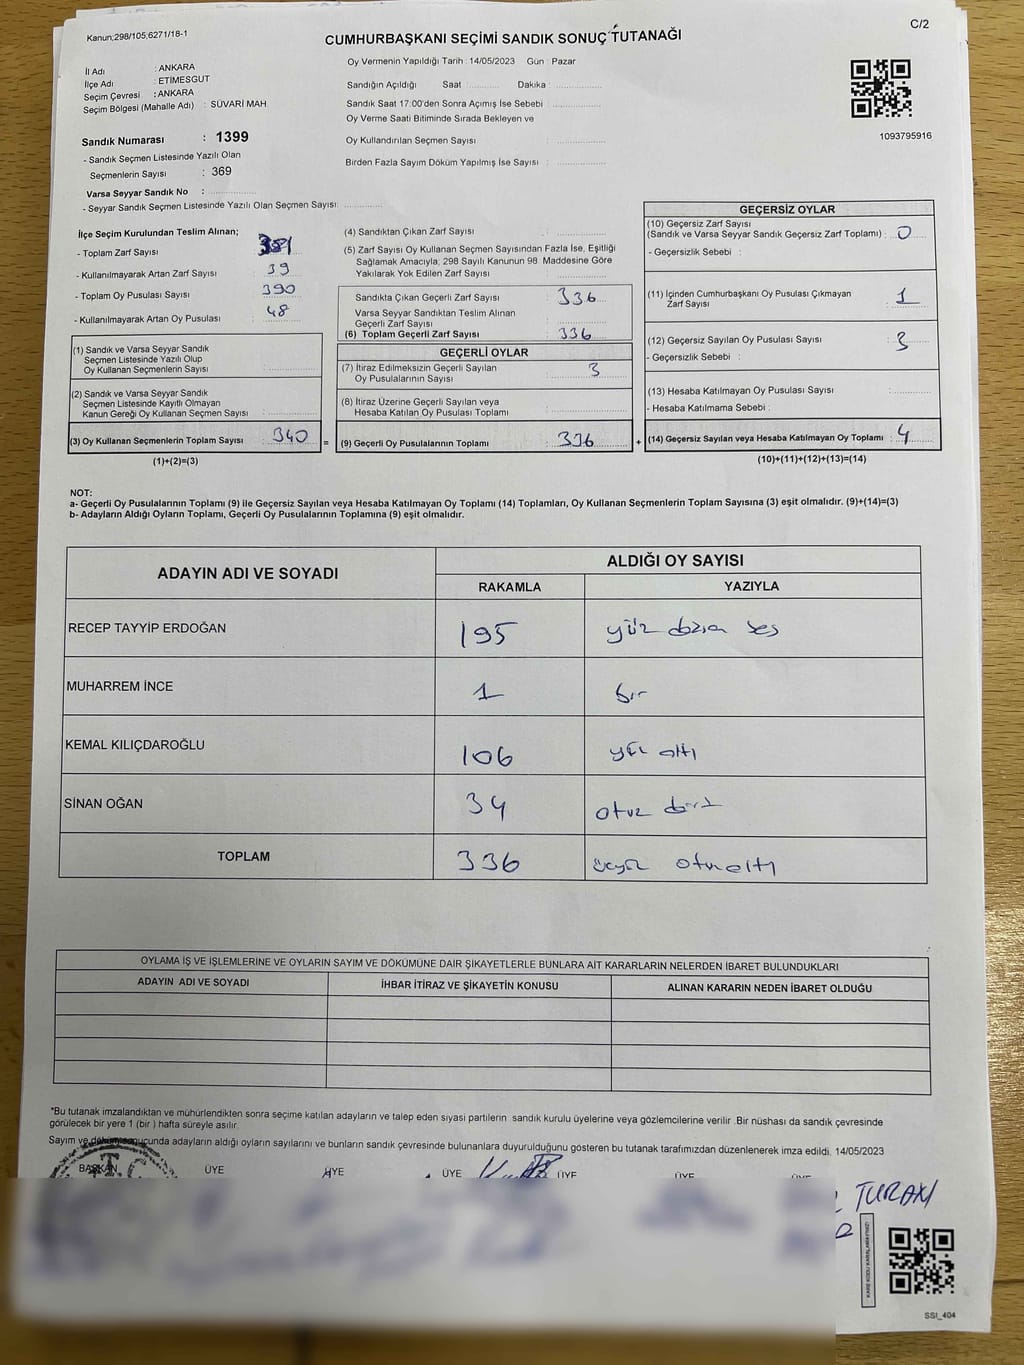 Kanun;298/105;6271/18-1
C/2
CUMHURBAŞKANI SEÇİMİ SANDIK SONUÇ TUTANAĞI
İl Adı : ANKARA
İlçe Adı : ETİMESGUT
Seçim Çevresi : ANKARA
Seçim Bölgesi (Mahalle Adı) : SÜVARİ MAH.
Sandık Numarası : 1399
- Sandık Seçmen Listesinde Yazılı Olan
Seçmenlerin Sayısı : 369
Varsa Seyyar Sandık No :
- Seyyar Sandık Seçmen Listesinde Yazılı Olan Seçmen Sayısı:
Oy Vermenin Yapıldığı Tarih : 14/05/2023 Gün : Pazar
Sandığın Açıldığı Saat : Dakika :
Sandık Saat 17:00'den Sonra Açımış İse Sebebi :
Oy Verme Saati Bitiminde Sırada Bekleyen ve
Oy Kullandırılan Seçmen Sayısı :
Birden Fazla Sayım Döküm Yapılmış İse Sayısı :
1093795916
İlçe Seçim Kurulundan Teslim Alınan;
- Toplam Zarf Sayısı :
- Kullanılmayarak Artan Zarf Sayısı : 39
- Toplam Oy Pusulası Sayısı : 390
- Kullanılmayarak Artan Oy Pusulası : 48
(1) Sandık ve Varsa Seyyar Sandık
Seçmen Listesinde Yazılı Olup
Oy Kullanan Seçmenlerin Sayısı :
(2) Sandık ve Varsa Seyyar Sandık
Seçmen Listesinde Kayıtlı Olmayan
Kanun Gereği Oy Kullanan Seçmen Sayısı :
(3) Oy Kullanan Seçmenlerin Toplam Sayısı : 340 =
(1)+(2)=(3)
(4) Sandıktan Çıkan Zarf Sayısı :
(5) Zarf Sayısı Oy Kullanan Seçmen Sayısından Fazla İse, Eşitliği
Sağlamak Amacıyla; 298 Sayılı Kanunun 98. Maddesine Göre
Yakılarak Yok Edilen Zarf Sayısı :
Sandıkta Çıkan Geçerli Zarf Sayısı : 336
Varsa Seyyar Sandıktan Teslim Alınan
Geçerli Zarf Sayısı :
(6) Toplam Geçerli Zarf Sayısı : 336
GEÇERLİ OYLAR
(7) İtiraz Edilmeksizin Geçerli Sayılan
Oy Pusulalarının Sayısı : 3
(8) İtiraz Üzerine Geçerli Sayılan veya
Hesaba Katılan Oy Pusulası Toplamı :
(9) Geçerli Oy Pusulalarının Toplamı : 336 +
GEÇERSİZ OYLAR
(10) Geçersiz Zarf Sayısı
(Sandık ve Varsa Seyyar Sandık Geçersiz Zarf Toplamı) : 0
- Geçersizlik Sebebi :
(11) İçinden Cumhurbaşkanı Oy Pusulası Çıkmayan
Zarf Sayısı : 1
(12) Geçersiz Sayılan Oy Pusulası Sayısı : 3
- Geçersizlik Sebebi :
(13) Hesaba Katılmayan Oy Pusulası Sayısı :
- Hesaba Katılmama Sebebi :
(14) Geçersiz Sayılan veya Hesaba Katılmayan Oy Toplamı : 4
(10)+(11)+(12)+(13)=(14)
NOT:
a- Geçerli Oy Pusulalarının Toplamı (9) ile Geçersiz Sayılan veya Hesaba Katılmayan Oy Toplamı (14) Toplamları, Oy Kullanan Seçmenlerin Toplam Sayısına (3) eşit olmalıdır. (9)+(14)=(3)
b- Adayların Aldığı Oyların Toplamı, Geçerli Oy Pusulalarının Toplamına (9) eşit olmalıdır.
ADAYIN ADI VE SOYADI ALDIĞI OY SAYISI
RAKAMLA YAZIYLA
RECEP TAYYİP ERDOĞAN 195 yüz doksan beş
MUHARREM İNCE 1 bir
KEMAL KILIÇDAROĞLU 106 yüz altı
SİNAN OĞAN 34 otuz dört
TOPLAM 336 üçyüz otuzaltı
OYLAMA İŞ VE İŞLEMLERİNE VE OYLARIN SAYIM VE DÖKÜMÜNE DAİR ŞİKAYETLERLE BUNLARA AİT KARARLARIN NELERDEN İBARET BULUNDUKLARI
ADAYIN ADI VE SOYADI İHBAR İTİRAZ VE ŞİKAYETİN KONUSU ALINAN KARARIN NEDEN İBARET OLDUĞU
*Bu tutanak imzalandıktan ve mühürlendikten sonra seçime katılan adayların ve talep eden siyasi partilerin sandık kurulu üyelerine veya gözlemcilerine verilir. Bir nüshası da sandık çevresinde
görülecek bir yere 1 (bir) hafta süreyle asılır.
Sayım ve döküm sonucunda adayların aldığı oyların sayılarını ve bunların sandık çevresinde bulunanlara duyurulduğunu gösteren bu tutanak tarafımızdan düzenlenerek imza edildi. 14/05/2023
BAŞKAN ÜYE ÜYE ÜYE ÜYE ÜYE ÜYE
T.C.
TURAN
SSI_404